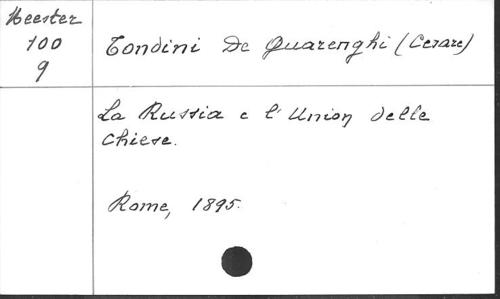 Heester
100
9
Tondini De Quarenghi (Cesare)
La Russia e l'Union delle
Chiese.
Rome, 1895.